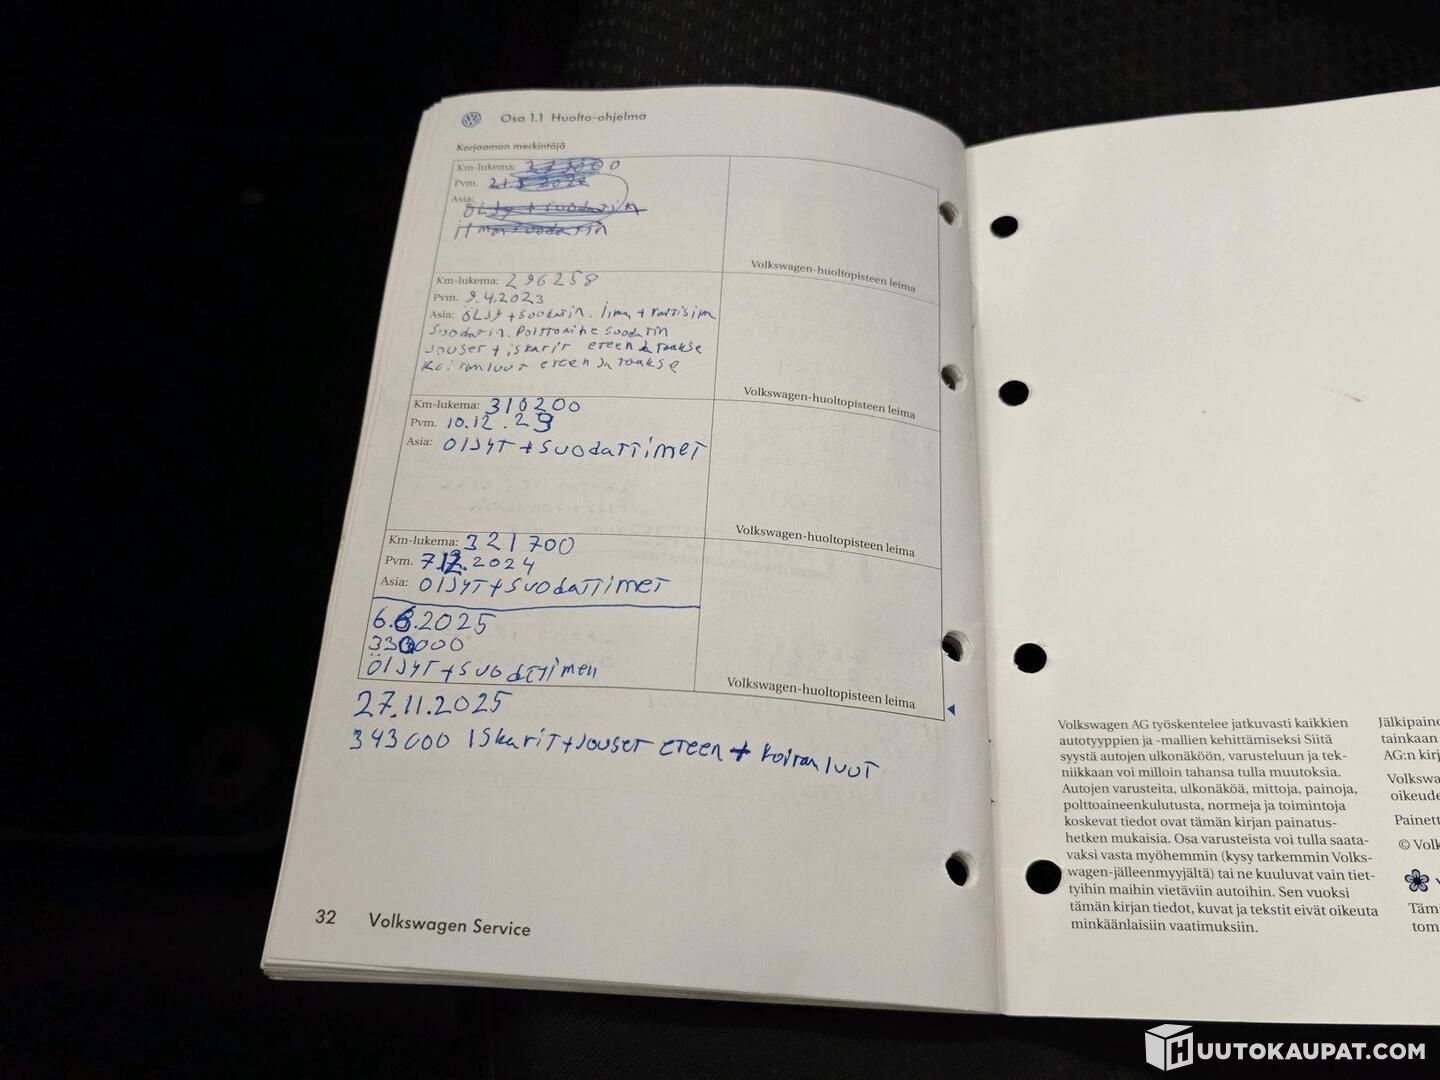 Osa 1.1 Huolto-ohjelma
Korjaamon merkintöjä
Km-lukema:
Pvm.
Asia:
Öljy + suodatin
ilmansuodatin
Volkswagen-huoltopisteen leima
Km-lukema: 296258
Pvm. 9.4.2023
Asia: ÖLJY + suodatin. ilma + raitisilma
suodatin. Polttoaine suodatin
Jouset + iskarit eteen Ja taakse
Koiranluut eteen Ja taakse
Volkswagen-huoltopisteen leima
Km-lukema: 310200
Pvm. 10.12.23
Asia: ÖlJyT + suodattimet
Volkswagen-huoltopisteen leima
Km-lukema: 321700
Pvm. 7.12.2024
Asia: ÖlJyT + suodattimet
6.6.2025
330000
ÖlJyT + suodattimen
Volkswagen-huoltopisteen leima
27.11.2025
343000 Iskarit + Jouset eteen + koiranluut
32 Volkswagen Service
Volkswagen AG työskentelee jatkuvasti kaikkien
autotyyppien ja -mallien kehittämiseksi Siitä
syystä autojen ulkonäköön, varusteluun ja tek-
niikkaan voi milloin tahansa tulla muutoksia.
Autojen varusteita, ulkonäköä, mittoja, painoja,
polttoaineenkulutusta, normeja ja toimintoja
koskevat tiedot ovat tämän kirjan painatus-
hetken mukaisia. Osa varusteista voi tulla saata-
vaksi vasta myöhemmin (kysy tarkemmin Volks-
wagen-jälleenmyyjältä) tai ne kuuluvat vain tiet-
tyihin maihin vietäviin autoihin. Sen vuoksi
tämän kirjan tiedot, kuvat ja tekstit eivät oikeuta
minkäänlaisiin vaatimuksiin.
Jälkipaino
tainkaan
AG:n kirj
Volkswa
oikeude
Painett
© Volk
Tämi
tom
HUUTOKAUPAT.COM